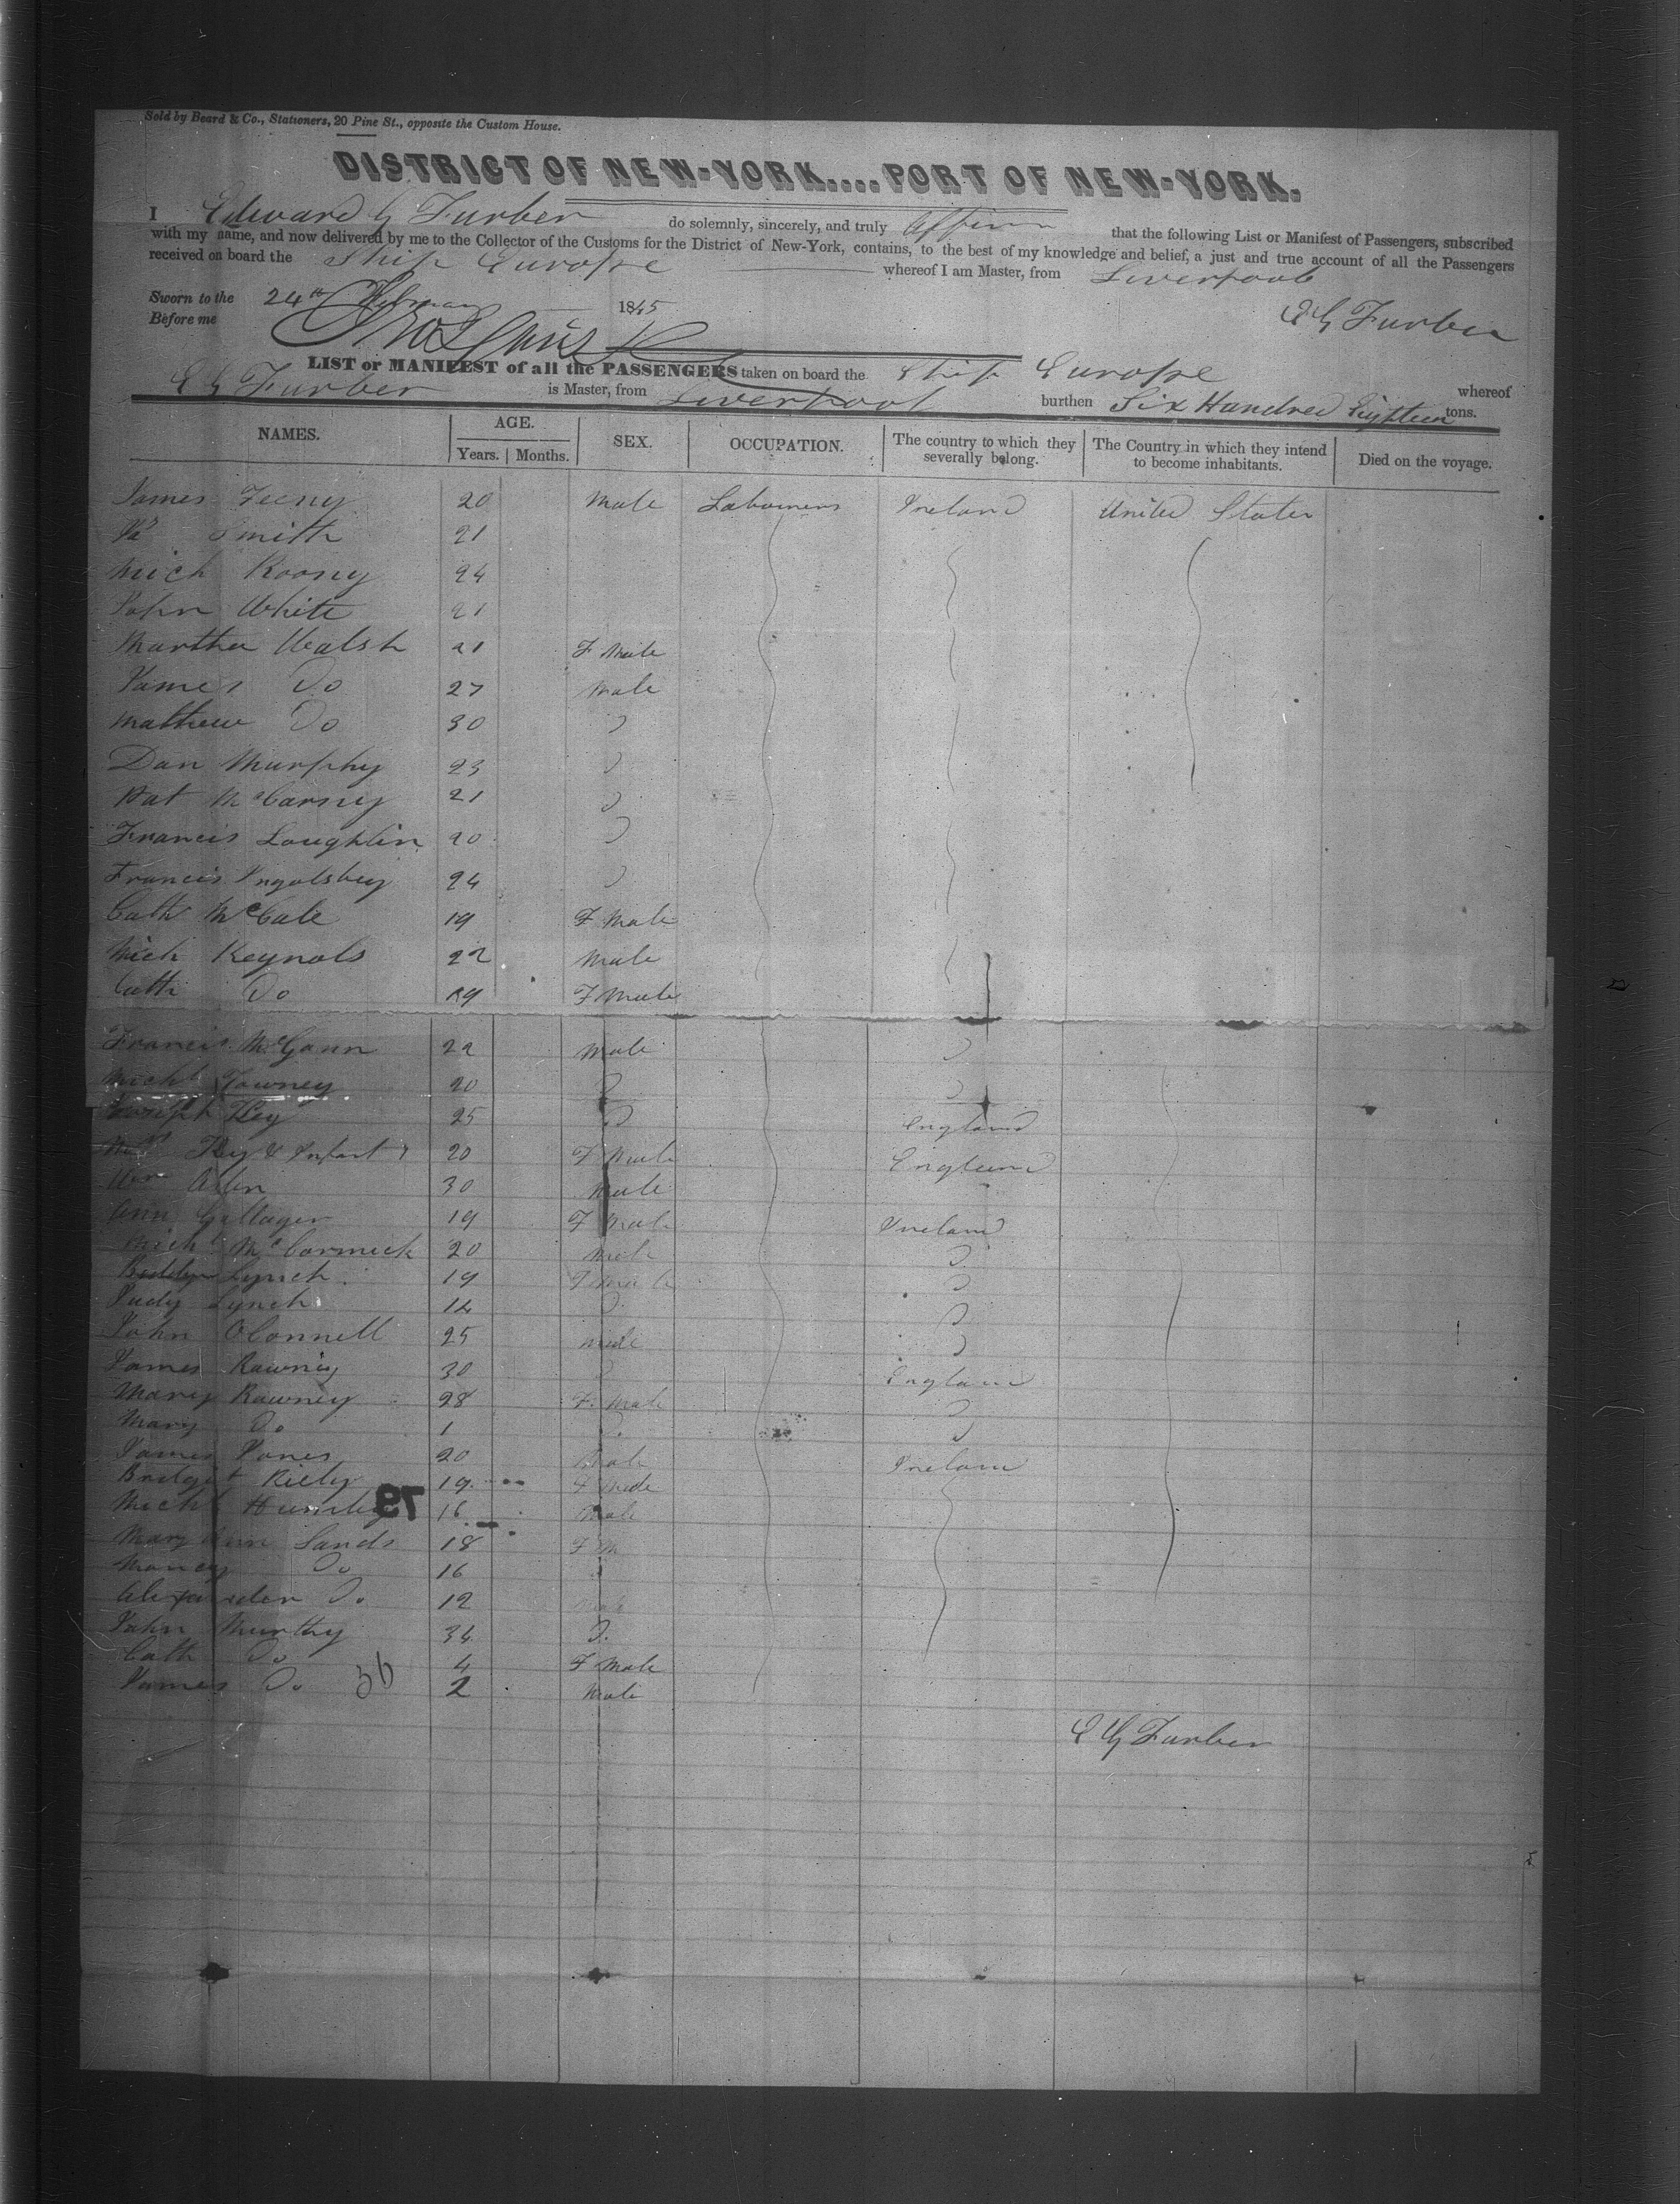 Sold by Beard & Co., Stationers, 20 Pine St., opposite the Custom House.
DISTRICT OF NEW-YORK....PORT OF NEW-YORK.
I Edward G Furber do solemnly, sincerely, and truly affirm that the following List or Manifest of Passengers, subscribed
with my name, and now delivered by me to the Collector of the Customs for the District of New-York, contains, to the best of my knowledge and belief, a just and true account of all the Passengers
received on board the Ship Europe whereof I am Master, from Liverpool
Sworn to the 24th February 1845
Before me
E G Furber
LIST or MANIFEST of all the PASSENGERS taken on board the Ship Europe whereof
E G Furber is Master, from Liverpool burthen Six Hundred Eighteen tons.
NAMES. AGE. Years. Months. SEX. OCCUPATION. The country to which they severally belong. The Country in which they intend to become inhabitants. Died on the voyage.
James Feeny 20 Male Labourers Ireland United States
Smith 21
Mich Roony 24
John White 21
Martha Walsh 21 F Male
James Do 27 Male
Mathew Do 30
Dan Murphy 23
Pat McCarney 21
Francis Loughlin 20
Francis Ingolsbey 24
Cath McCabe 19 F Male
Mich Reynols 22 Male
Cath Do 19 F Male
Francis McGann 22 Male
Michl 20
25 England
& Infant 20 F Male England
Allen 30 Male
Ann Gallager 19 F Male Ireland
Michl McCormick 20 Male
Lynch 19 F Male
Judy Lynch
John OConnell 25 Male
James Rawney 30 England
Mary Rawney 28 F. Male
Mary Do 1
James Jones 20 Male Ireland
Bridget Riely 19 F Male
Michl 16 Male
79
Mary Ann Sands 18 F M
Do 16
Alexander Do 12 Male
John Murthy 34
Cath Do 4 F Male
James Do 2 Male
36
E G Furber